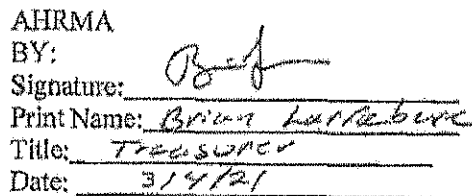 AHRMA
BY:
Signature:
Print Name: Brian Larrabure
Title: Treasurer
Date: 3/4/21